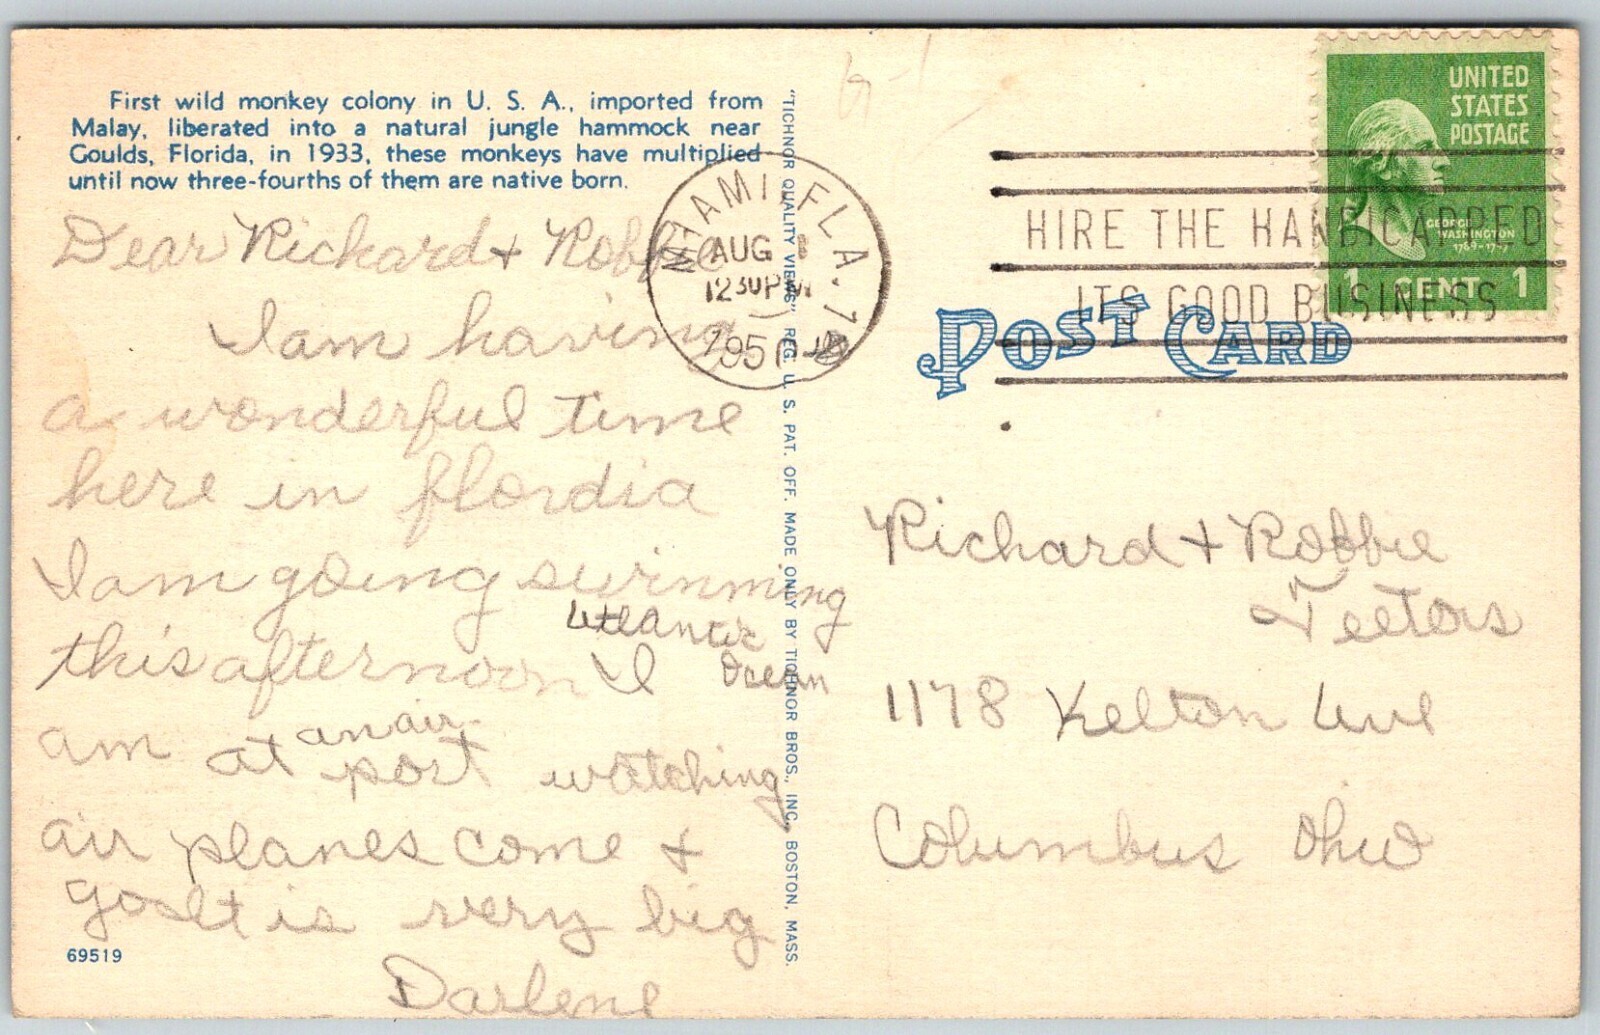 First wild monkey colony in U. S. A., imported from
Malay, liberated into a natural jungle hammock near
Goulds, Florida, in 1933, these monkeys have multiplied
until now three-fourths of them are native born.
Dear Richard + Robbie
I am having
a wonderful time
here in flordia
I am going swimming
Atlantic
Ocean
this afternoon I
am at an air
port watching
air planes come +
go It is very big
Darlene
69519
"TICHNOR QUALITY VIEWS" REG. U. S. PAT. OFF. MADE ONLY BY TICHNOR BROS., INC., BOSTON, MASS.
MIAMI, FLA.
AUG
12 30 PM
195
HIRE THE HANDICAPPED
ITS GOOD BUSINESS
UNITED
STATES
POSTAGE
GEORGE
WASHINGTON
1789-1797
1 CENT 1
POST CARD
Richard + Robbie
Teetors
1178 Kelton Ave
Columbus Ohio